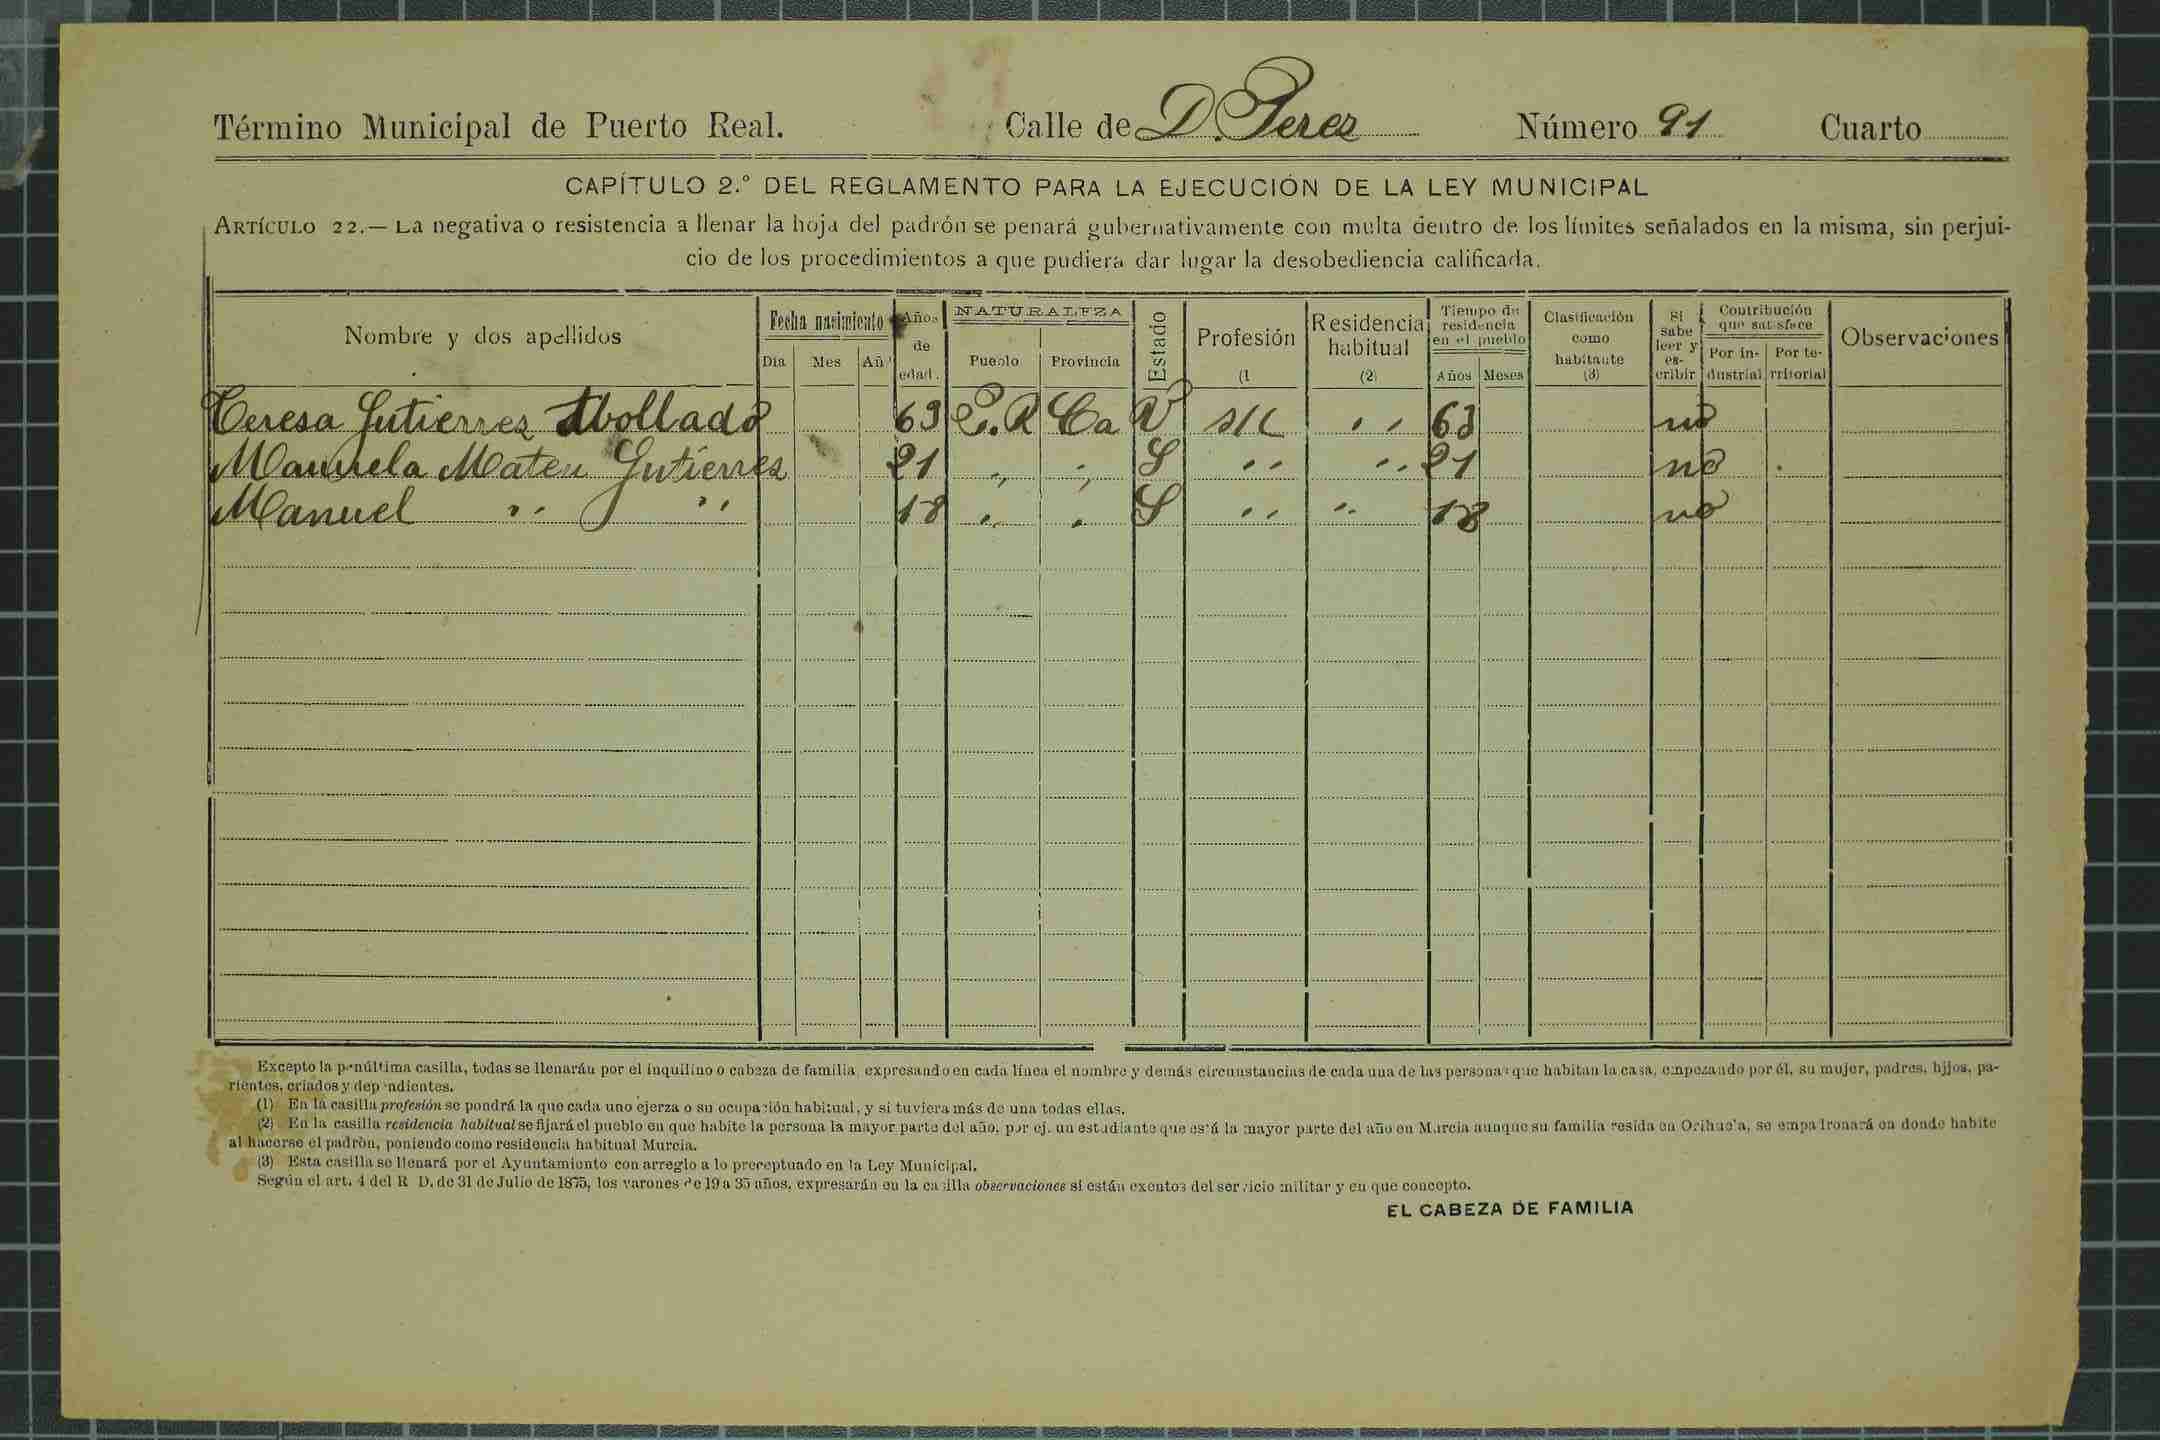 Término Municipal de Puerto Real. Calle de D. Perez Número 91 Cuarto
CAPÍTULO 2.º DEL REGLAMENTO PARA LA EJECUCIÓN DE LA LEY MUNICIPAL
ARTÍCULO 22.— La negativa o resistencia a llenar la hoja del padrón se penará gubernativamente con multa dentro de los límites señalados en la misma, sin perjui-
cio de los procedimientos a que pudiera dar lugar la desobediencia calificada.
Nombre y dos apellidos
Fecha nacimiento
Dia Mes Añ
Años de edad.
NATURALEZA
Pueblo Provincia
Estado
Profesión (1
Residencia habitual (2)
Tiempo de residencia en el pueblo
Años Meses
Clasificación como habitante (3)
Si sabe leer y es-cribir
Contribución que satisface
Por in-dustrial Por te-rritorial
Observaciones
Teresa Gutierrez Abollado 63 P.R Ca V s/c ,, 63 no
Manuela Mateu Gutierrez 21 ,, ,, S ,, ,, 21 no
Manuel ,, ,, 18 ,, ,, S ,, ,, 18 no
Excepto la penúltima casilla, todas se llenarán por el inquilino o cabeza de familia, expresando en cada línea el nombre y demás circunstancias de cada una de las personas que habitan la casa, empezando por él, su mujer, padres, hijos, pa-
rientes, criados y dependientes.
(1) En la casilla profesión se pondrá la que cada uno ejerza o su ocupación habitual, y si tuviera más de una todas ellas.
(2) En la casilla residencia habitual se fijará el pueblo en que habite la persona la mayor parte del año, por ej. un estudiante que está la mayor parte del año en Murcia aunque su familia resida en Orihuela, se empadronará en donde habite
al hacerse el padrón, poniendo como residencia habitual Murcia.
(3) Esta casilla se llenará por el Ayuntamiento con arreglo a lo preceptuado en la Ley Municipal.
Según el art. 4 del R D. de 31 de Julio de 1875, los varones de 19 a 35 años, expresarán en la casilla observaciones si están exentos del servicio militar y en que concepto.
EL CABEZA DE FAMILIA